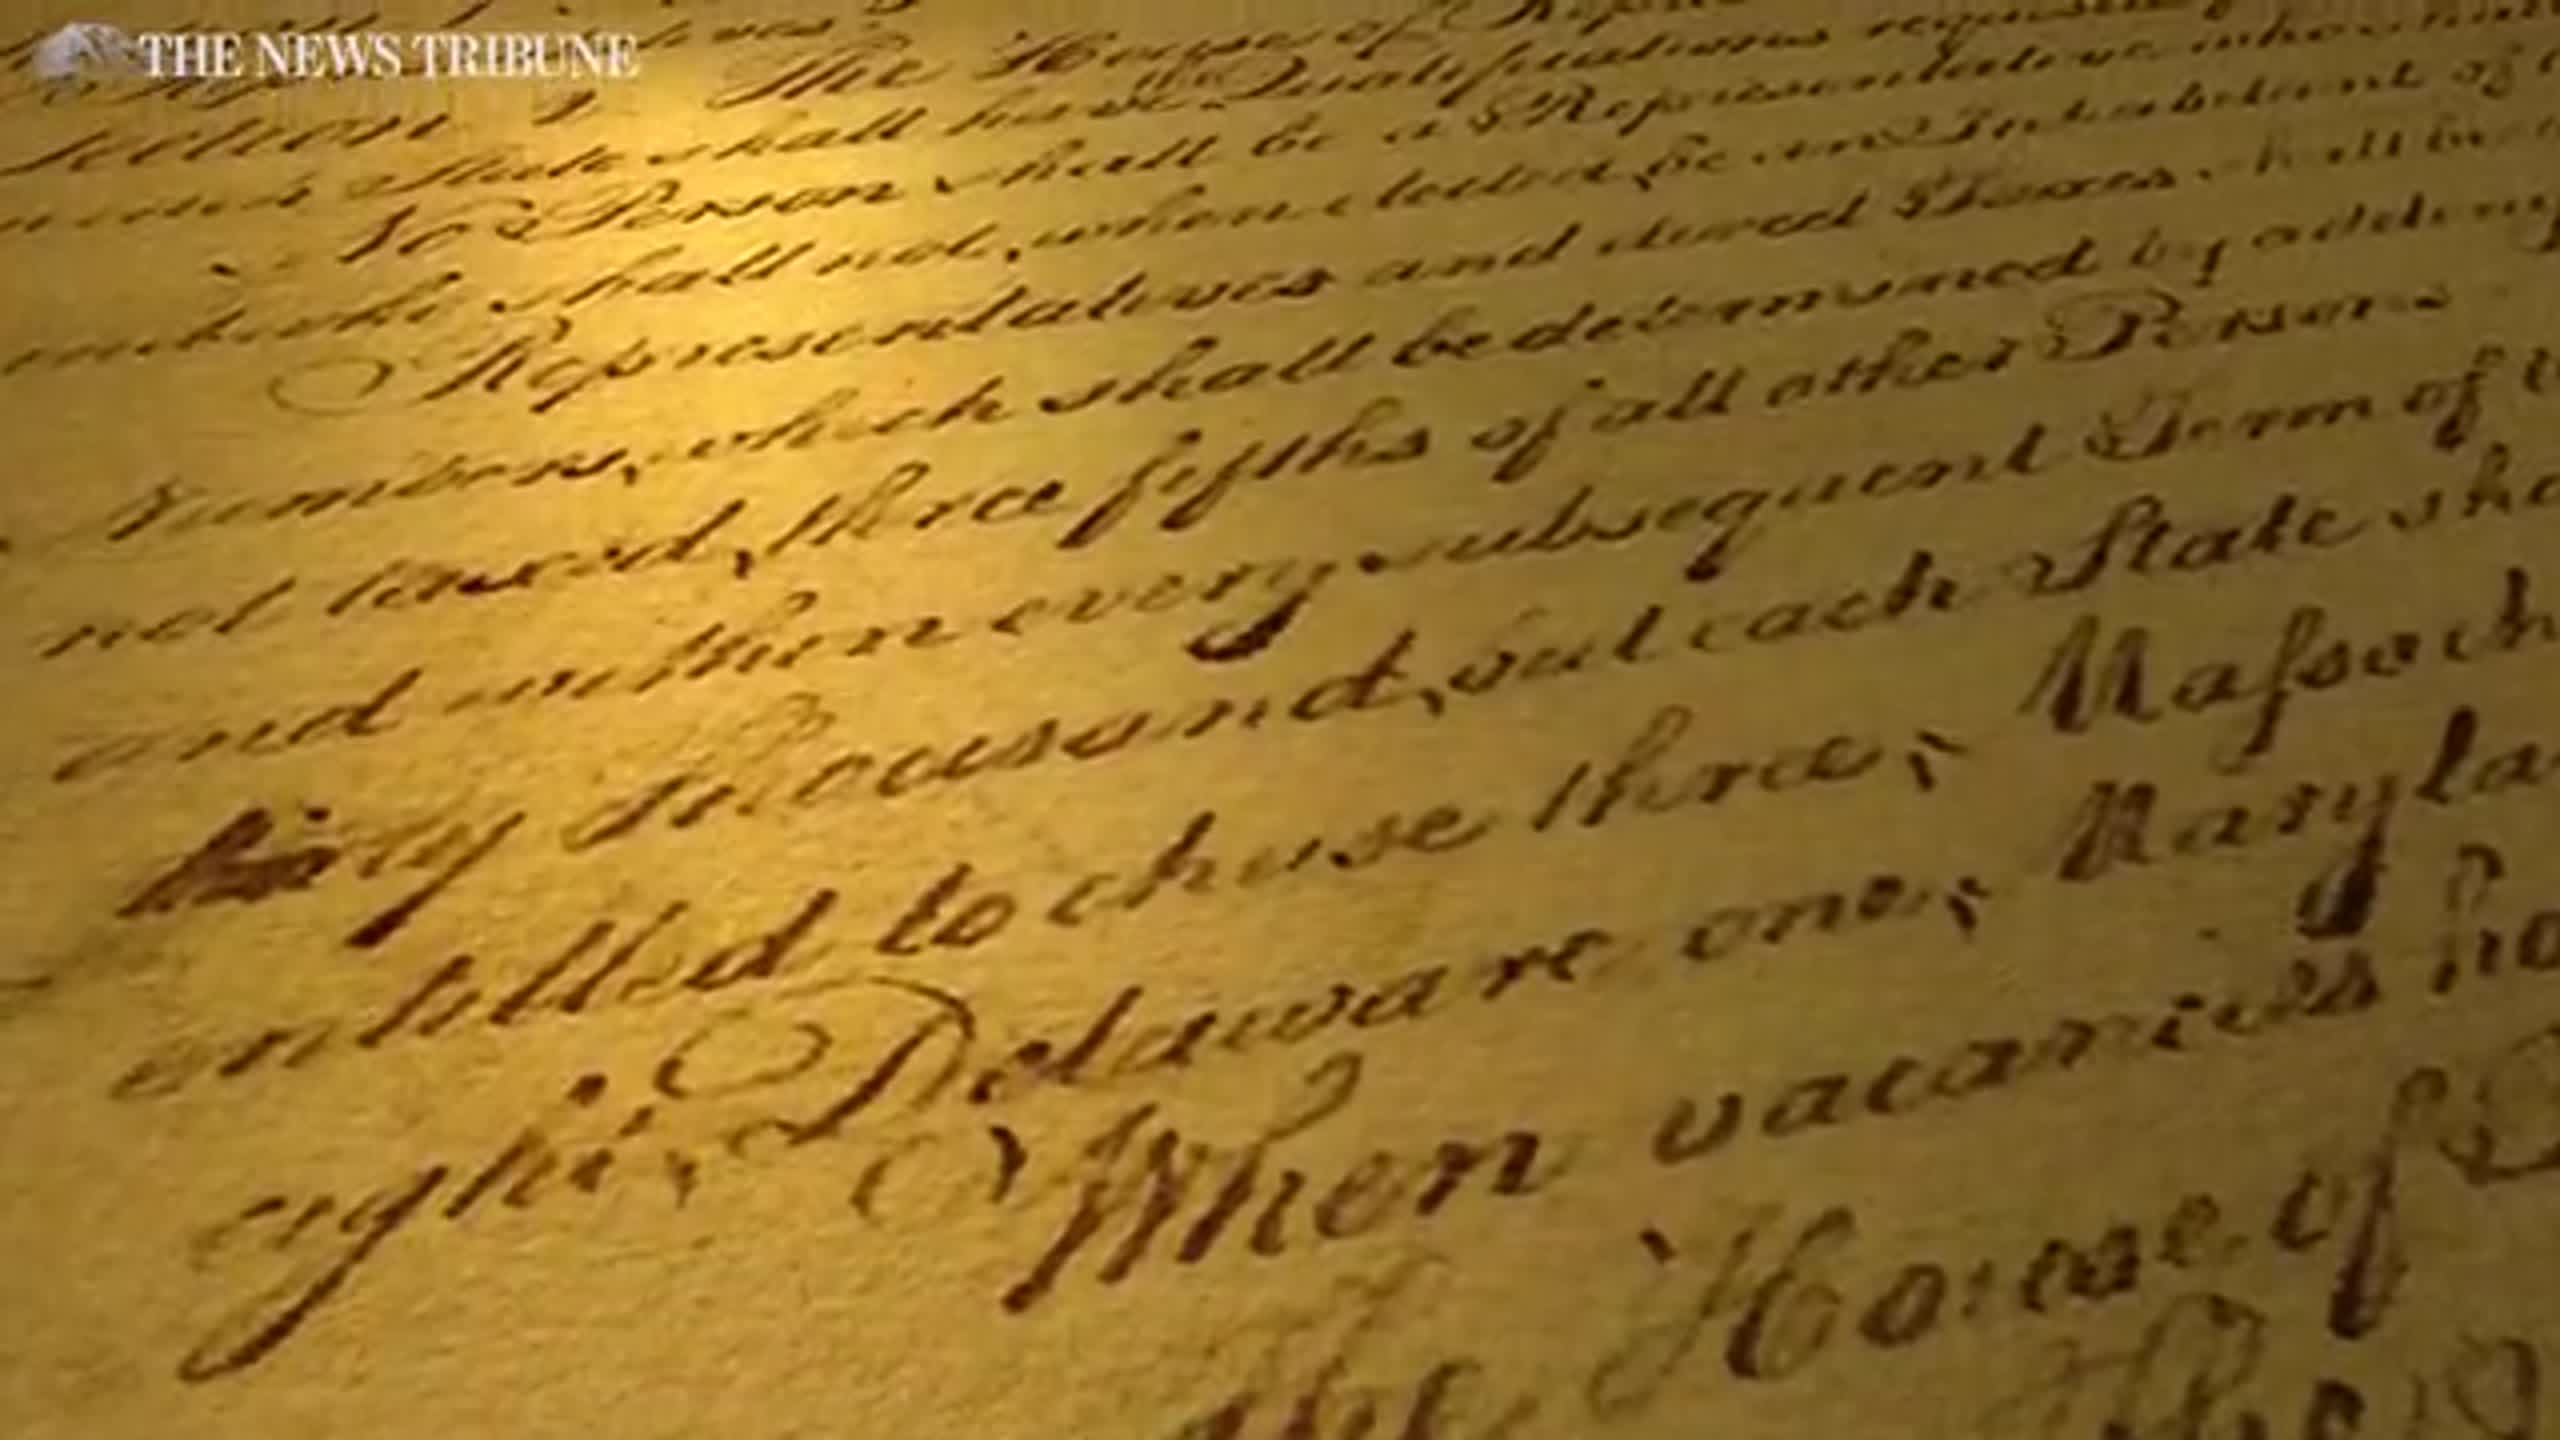 THE NEWS TRIBUNE
Section The House of
State shall have the Qualifications requisite
No Person shall be a Representative who
who shall not, when elected, be an Inhabitant of
Representatives and direct Taxes shall be
Numbers, which shall be determined by adding
not taxed, three fifths of all other Persons
and within every subsequent Term of
thirty Thousand, but each State sha
entitled to chuse three, Massach
eight, Delaware one, Maryla
When vacancies ha
the House of
The